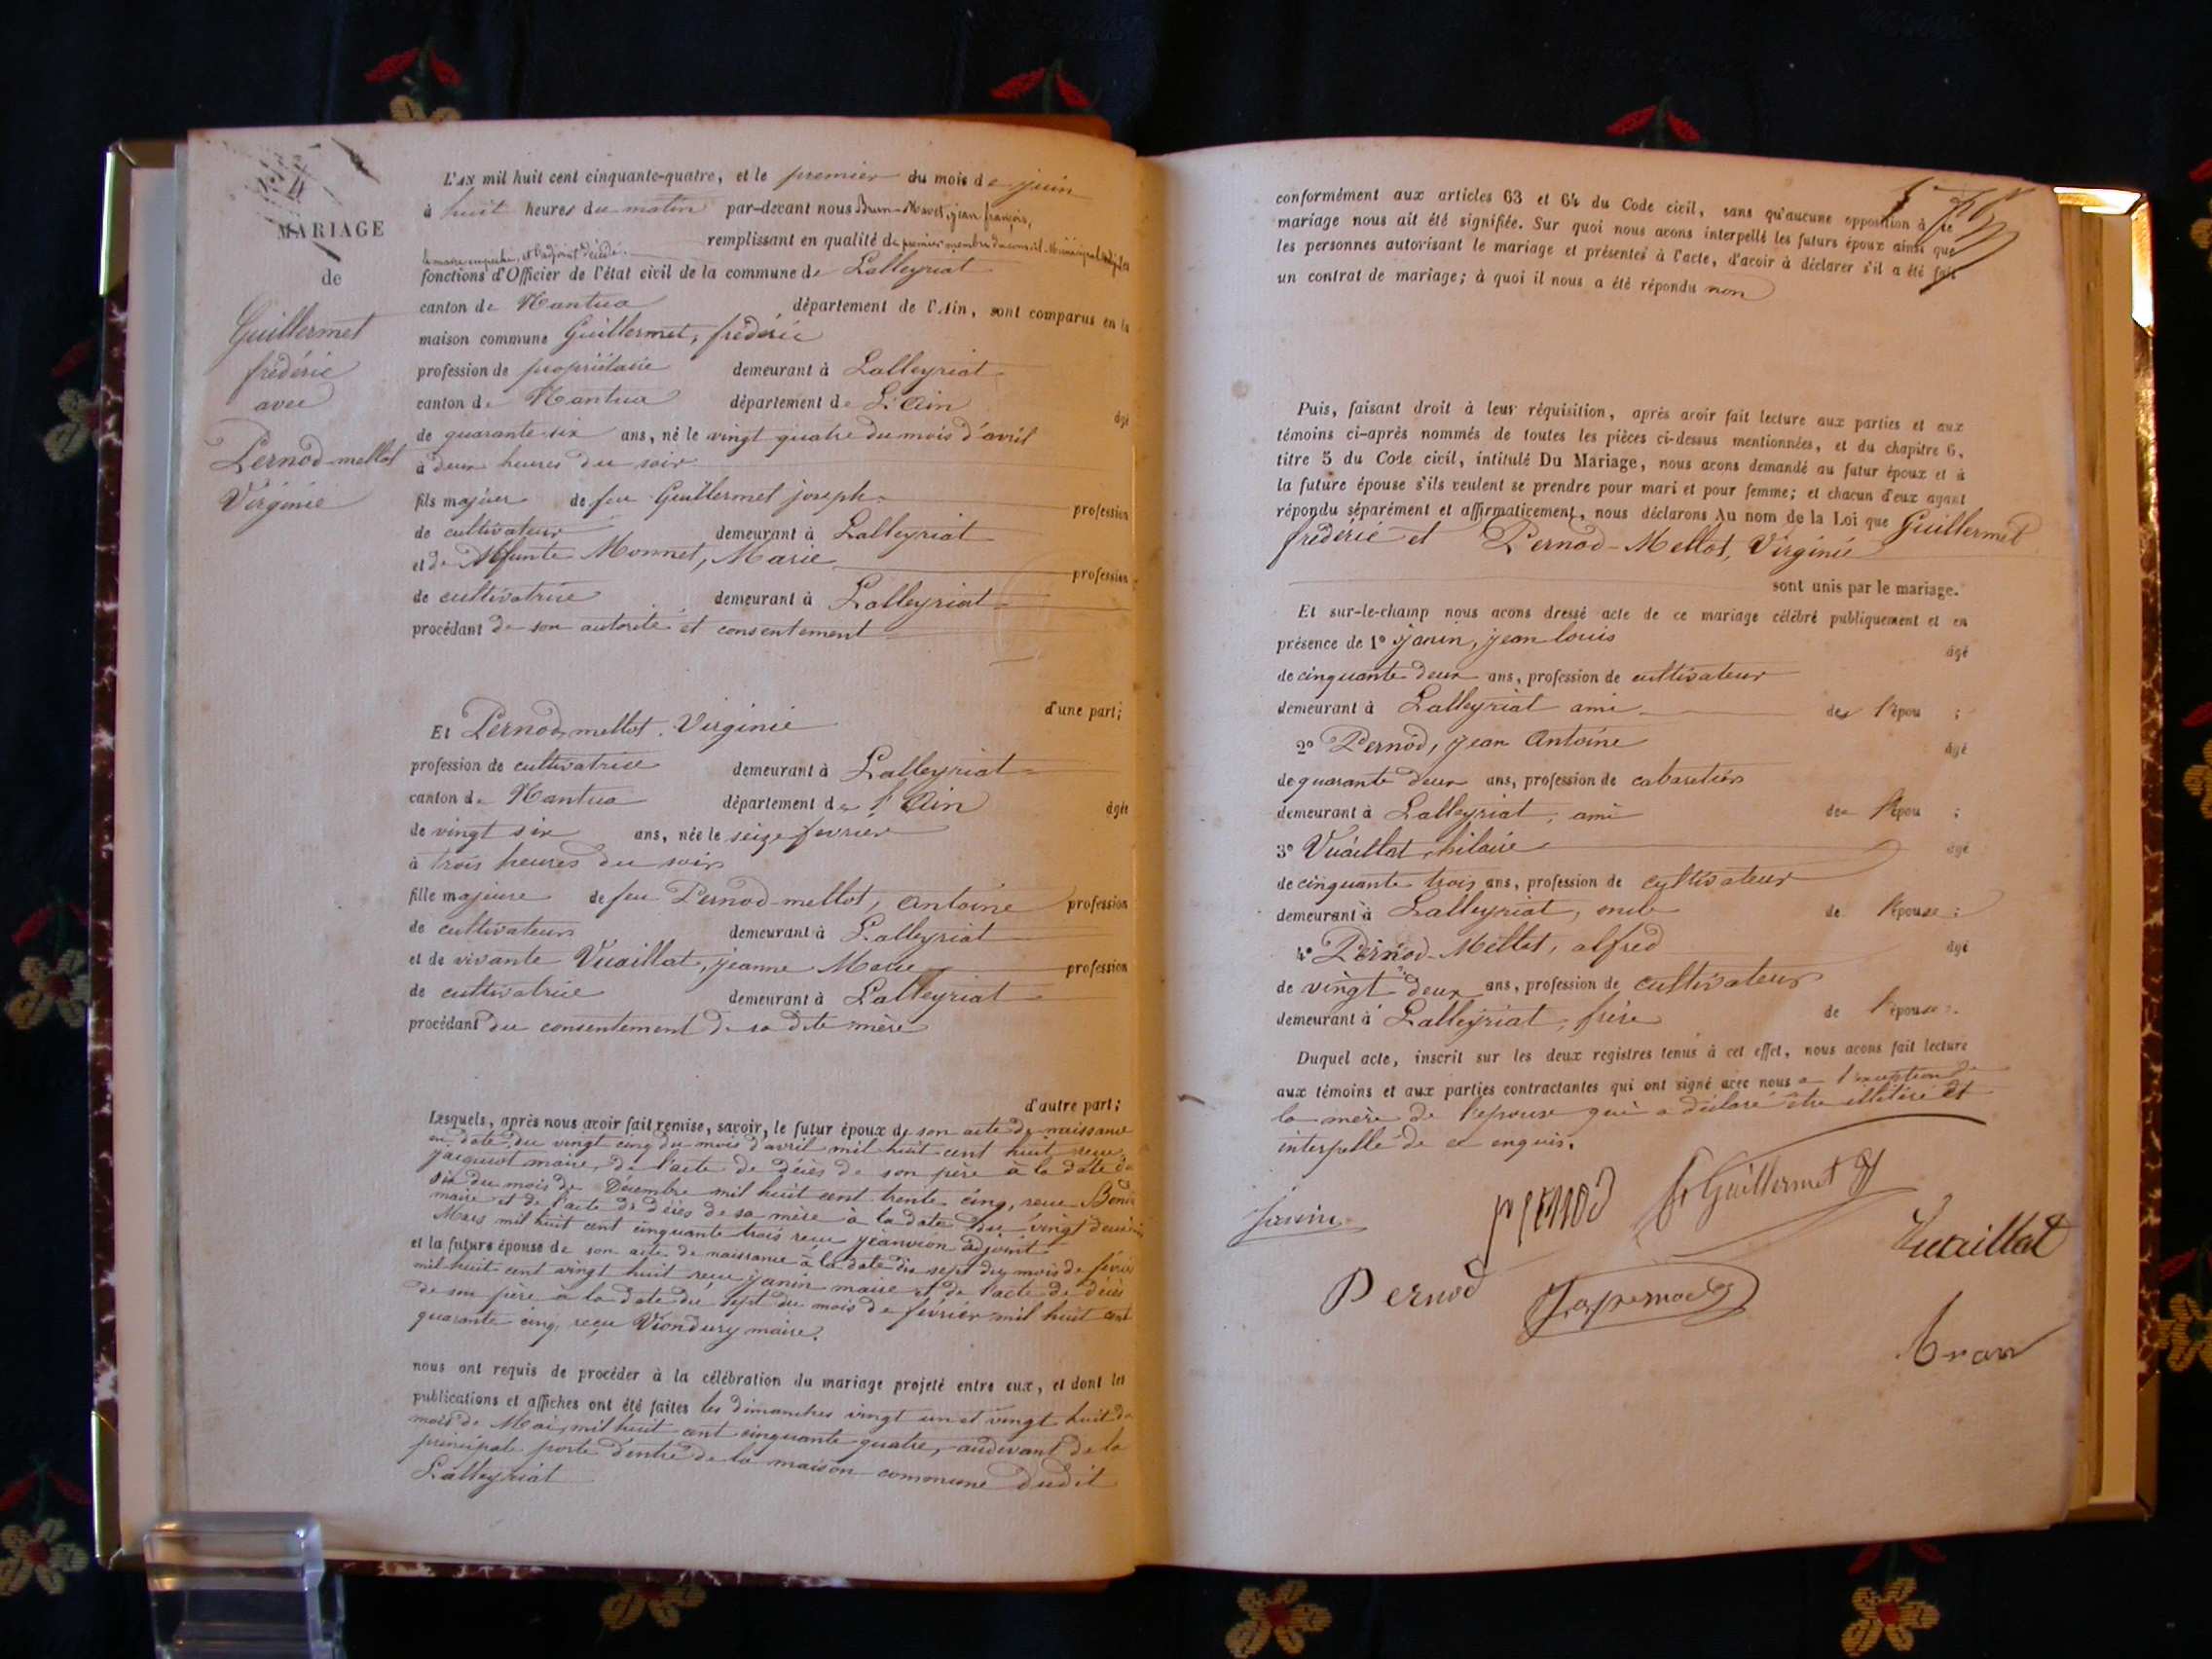 4
MARIAGE
de
Guillermet
frédéric
avec
Pernod-mellot
Virginie
L'AN mil huit cent cinquante-quatre, et le premier du mois de juin
à huit heures du matin par-devant nous Brun-Navet, jean françois,
remplissant en qualité de premier membre du conseil Municipal
le maire empêché, et l'adjoint décédé.
fonctions d'Officier de l'état civil de la commune de Lalleyriat
canton de Nantua département de l'Ain, sont comparus en la
maison commune Guillermet, frédéric
profession de propriétaire demeurant à Lalleyriat
canton de Nantua département de L'Ain âgé
de quarante six ans, né le vingt quatre du mois d'avril
à deux heures du soir
fils majeur de feu Guillermet joseph profession
de cultivateur demeurant à Lalleyriat
et de défunte Monnet, Marie profession
de cultivatrice demeurant à Lalleyriat
procédant de son autorité et consentement
d'une part;
Et Pernod mellot. Virginie
profession de cultivatrice demeurant à Lalleyriat
canton de Nantua département de l'Ain âgée
de vingt six ans, née le seize fevrier
à trois heures du soir
fille majeure de feu Pernod-mellot, Antoine profession
de cultivateur demeurant à Lalleyriat
et de vivante Vuaillat, jeanne Marie profession
de cultivatrice demeurant à Lalleyriat
procédant du consentement de sa dite mère
d'autre part;
Lesquels, après nous avoir fait remise, savoir, le futur époux de son acte de naissance
en date du vingt cinq du mois d'avril mil huit cent huit, reçu
jacquiot maire, de l'acte de décès de son père à la date du
six du mois de Décembre mil huit cent trente cinq, reçu
maire et de l'acte de décès de sa mère à la date du vingt deux
Mars mil huit cent cinquante trois reçu jeanvion adjoint
et la future épouse de son acte de naissance à la date du sept du mois de février
mil huit cent vingt huit reçu janin maire et de l'acte de décès
de son père à la date du sept du mois de février mil huit cent
quarante cinq, reçu Viondury maire.
nous ont requis de procéder à la célébration du mariage projeté entre eux, et dont les
publications et affiches ont été faites les dimanches vingt un et vingt huit du
mois de Mai, mil huit cent cinquante quatre, audevant de la
principale porte d'entré de la maison commune dudit
Lalleyriat
conformément aux articles 63 et 64 du Code civil, sans qu'aucune opposition à ce
mariage nous ait été signifiée. Sur quoi nous avons interpellé les futurs époux ainsi que
les personnes autorisant le mariage et présentes à l'acte, d'avoir à déclarer s'il a été fait
un contrat de mariage; à quoi il nous a été répondu non
Puis, faisant droit à leur réquisition, après avoir fait lecture aux parties et aux
témoins ci-après nommés de toutes les pièces ci-dessus mentionnées, et du chapitre 6,
titre 5 du Code civil, intitulé Du Mariage, nous avons demandé au futur époux et à
la future épouse s'ils veulent se prendre pour mari et pour femme; et chacun d'eux ayant
répondu séparément et affirmativement, nous déclarons Au nom de la Loi que Guillermet
frédéric et Pernod-Mellot, Virginie
sont unis par le mariage.
Et sur-le-champ nous avons dressé acte de ce mariage célébré publiquement et en
présence de 1° janin, jean louis âgé
de cinquante deux ans, profession de cultivateur
demeurant à Lalleyriat ami des l'épou ;
2° Pernod, jean Antoine âgé
de quarante deux ans, profession de cabaretier
demeurant à Lalleyriat, ami de l'épou ;
3° Vuaillat, hilaire âgé
de cinquante trois ans, profession de cultivateur
demeurant à Lalleyriat, oncle de l'épouse ;
4° Pernod-Mellot, alfred âgé
de vingt deux ans, profession de cultivateur
demeurant à Lalleyriat, frère de l'épouse.
Duquel acte, inscrit sur les deux registres tenus à cet effet, nous avons fait lecture
aux témoins et aux parties contractantes qui ont signé avec nous a l'exception de
la mère de l'epouse qui a déclaré être illitéré et
interpellé de ce enquis.
janin
pernod
fr Guillermet
Vuaillat
Pernod
Brun